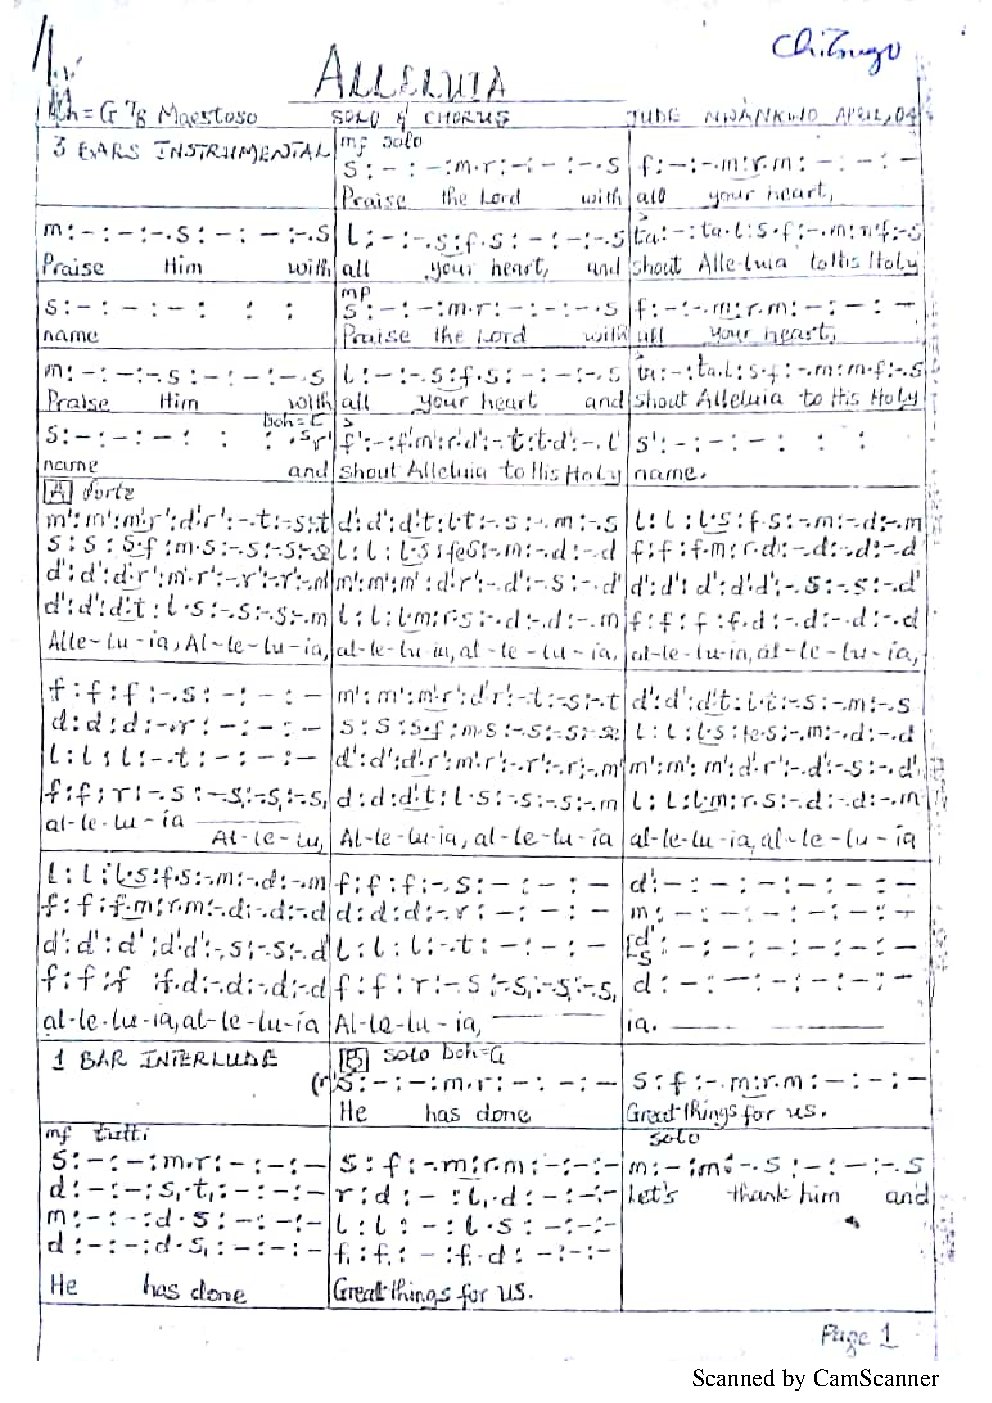 Chibugo
ALLELUIA
Doh = G 7/8 Maestoso SOLO & CHORUS JUDE NWANKWO APRIL, 04
3 BARS INSTRUMENTAL mf solo
s : - : - : m . r : - : - : - . s f : - : - . m : r . m : - : - : -
Praise the Lord with all your heart,
m : - : - : - . s : - : - : - . s l : - : - . s : f . s : - : - : - . s ta : - : ta . l : s . f : - . m : m . f : - . s
Praise Him with all your heart, and shout Alle-luia to His Holy
s : - : - : - : : : mp s : - : - : m . r : - : - : - . s f : - : - . m : r . m : - : - : -
name Praise the Lord with all your heart,
m : - : - : - . s : - : - : - . s l : - : - . s : f . s : - : - : - . s ta : - : ta . l : s . f : - . m : m . f : - . s
Praise Him with all your heart and shout Alleluia to His Holy
doh = C
s : - : - : - : : : . s r' f' : - : f' . m' : r' . d' : - . t : t . d' : - . l s' : - : - : - : : :
name and shout Alleluia to His Holy name.
A forte
m' : m' : m' . r' : d' . r' : - . t : - . s : - . t d' : d' : d' . t : l . t : - . s : - . m : - . s l : l : l . s : f . s : - . m : - . d : - . m
s : s : s . f : m . s : - . s : - . s : - . se l : l : l . s : fe . s : - . m : - . d : - . d f : f : f . m : r . d : - . d : - . d : - . d
d' : d' : d' . r' : m' . r' : - . r' : - . r' : - . m' m' : m' : m' : d' . r' : - . d' : - . s : - . d' d' : d' : d' : d' . d' : - . s : - . s : - . d'
d' : d' : d' . t : l . s : - . s : - . s : - . m l : l : l . m : r . s : - . d : - . d : - . m f : f : f : f . d : - . d : - . d : - . d
Alle-lu-ia, Al-le-lu-ia, al-le-lu-ia, al-le-lu-ia, al-le-lu-ia, al-le-lu-ia,
f : f : f : - . s : - : - : - m' : m' : m' . r' : d' . r' : - . t : - . s : - . t d' : d' : d' . t : l . t : - . s : - . m : - . s
d : d : d : - . r : - : - : - s : s : s . f : m . s : - . s : - . s : - . se l : l : l . s : fe . s : - . m : - . d : - . d
l : l : l : - . t : - : - : - d' : d' : d' . r' : m' . r' : - . r' : - . r' : - . m' m' : m' : m' . d' . r' : - . d' : - . s : - . d'
f : f : r : - . s : - . s, : - . s, : - . s, d : d : d . t : l . s : - . s : - . s : - . m l : l : l . m : r . s : - . d : - . d : - . m
al-le-lu-ia
Al-le-lu, Al-le-lu-ia, al-le-lu-ia al-le-lu-ia, al-le-lu-ia
l : l : l . s : f . s : - . m : - . d : - . m f : f : f : - . s : - : - : - d' : - : - : - : - : - : -
f : f : f . m : r . m : - . d : - . d : - . d d : d : d : - . r : - : - : - m : - : - : - : - : - : -
d' : d' : d' : d' . d' : - . s : - . s : - . d' l : l : l : - . t : - : - : - [d' s : - : - : - : - : - : -
f : f : f : f . d : - . d : - . d : - . d f : f : r : - . s : - . s, : - . s, : - . s, d : - : - : - : - : - : -
al-le-lu-ia, al-le-lu-ia Al-le-lu-ia, ia.
1 BAR INTERLUDE B Solo doh = G
(r')s : - : - : m . r : - : - : - s : f : - . m : r . m : - : - : -
He has done Great things for us.
mf tutti solo
s : - : - : m . r : - : - : - s : f : - . m : r . m : - : - : - m : - : m : - . s : - : - : - . s
d : - : - : s, . t, : - : - : - r : d : - : l, . d : - : - : - Let's thank him and
m : - : - : d . s : - : - : - l : l : - : l . s : - : - : -
d : - : - : d . s, : - : - : - f, : f, : - : f, . d : - : - : -
He has done Great things for us.
Page 1
Scanned by CamScanner